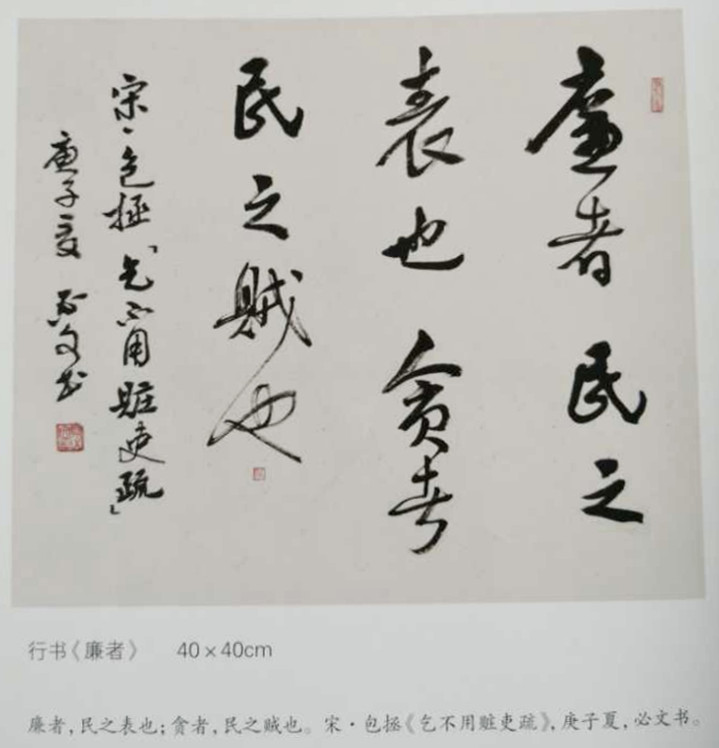 廉者民之
表也贪者
民之贼也
宋·包拯「乞不用赃吏疏」
庚子夏 必文书
行书《廉者》 40×40cm
廉者，民之表也；贪者，民之贼也。宋·包拯《乞不用赃吏疏》，庚子夏，必文书。